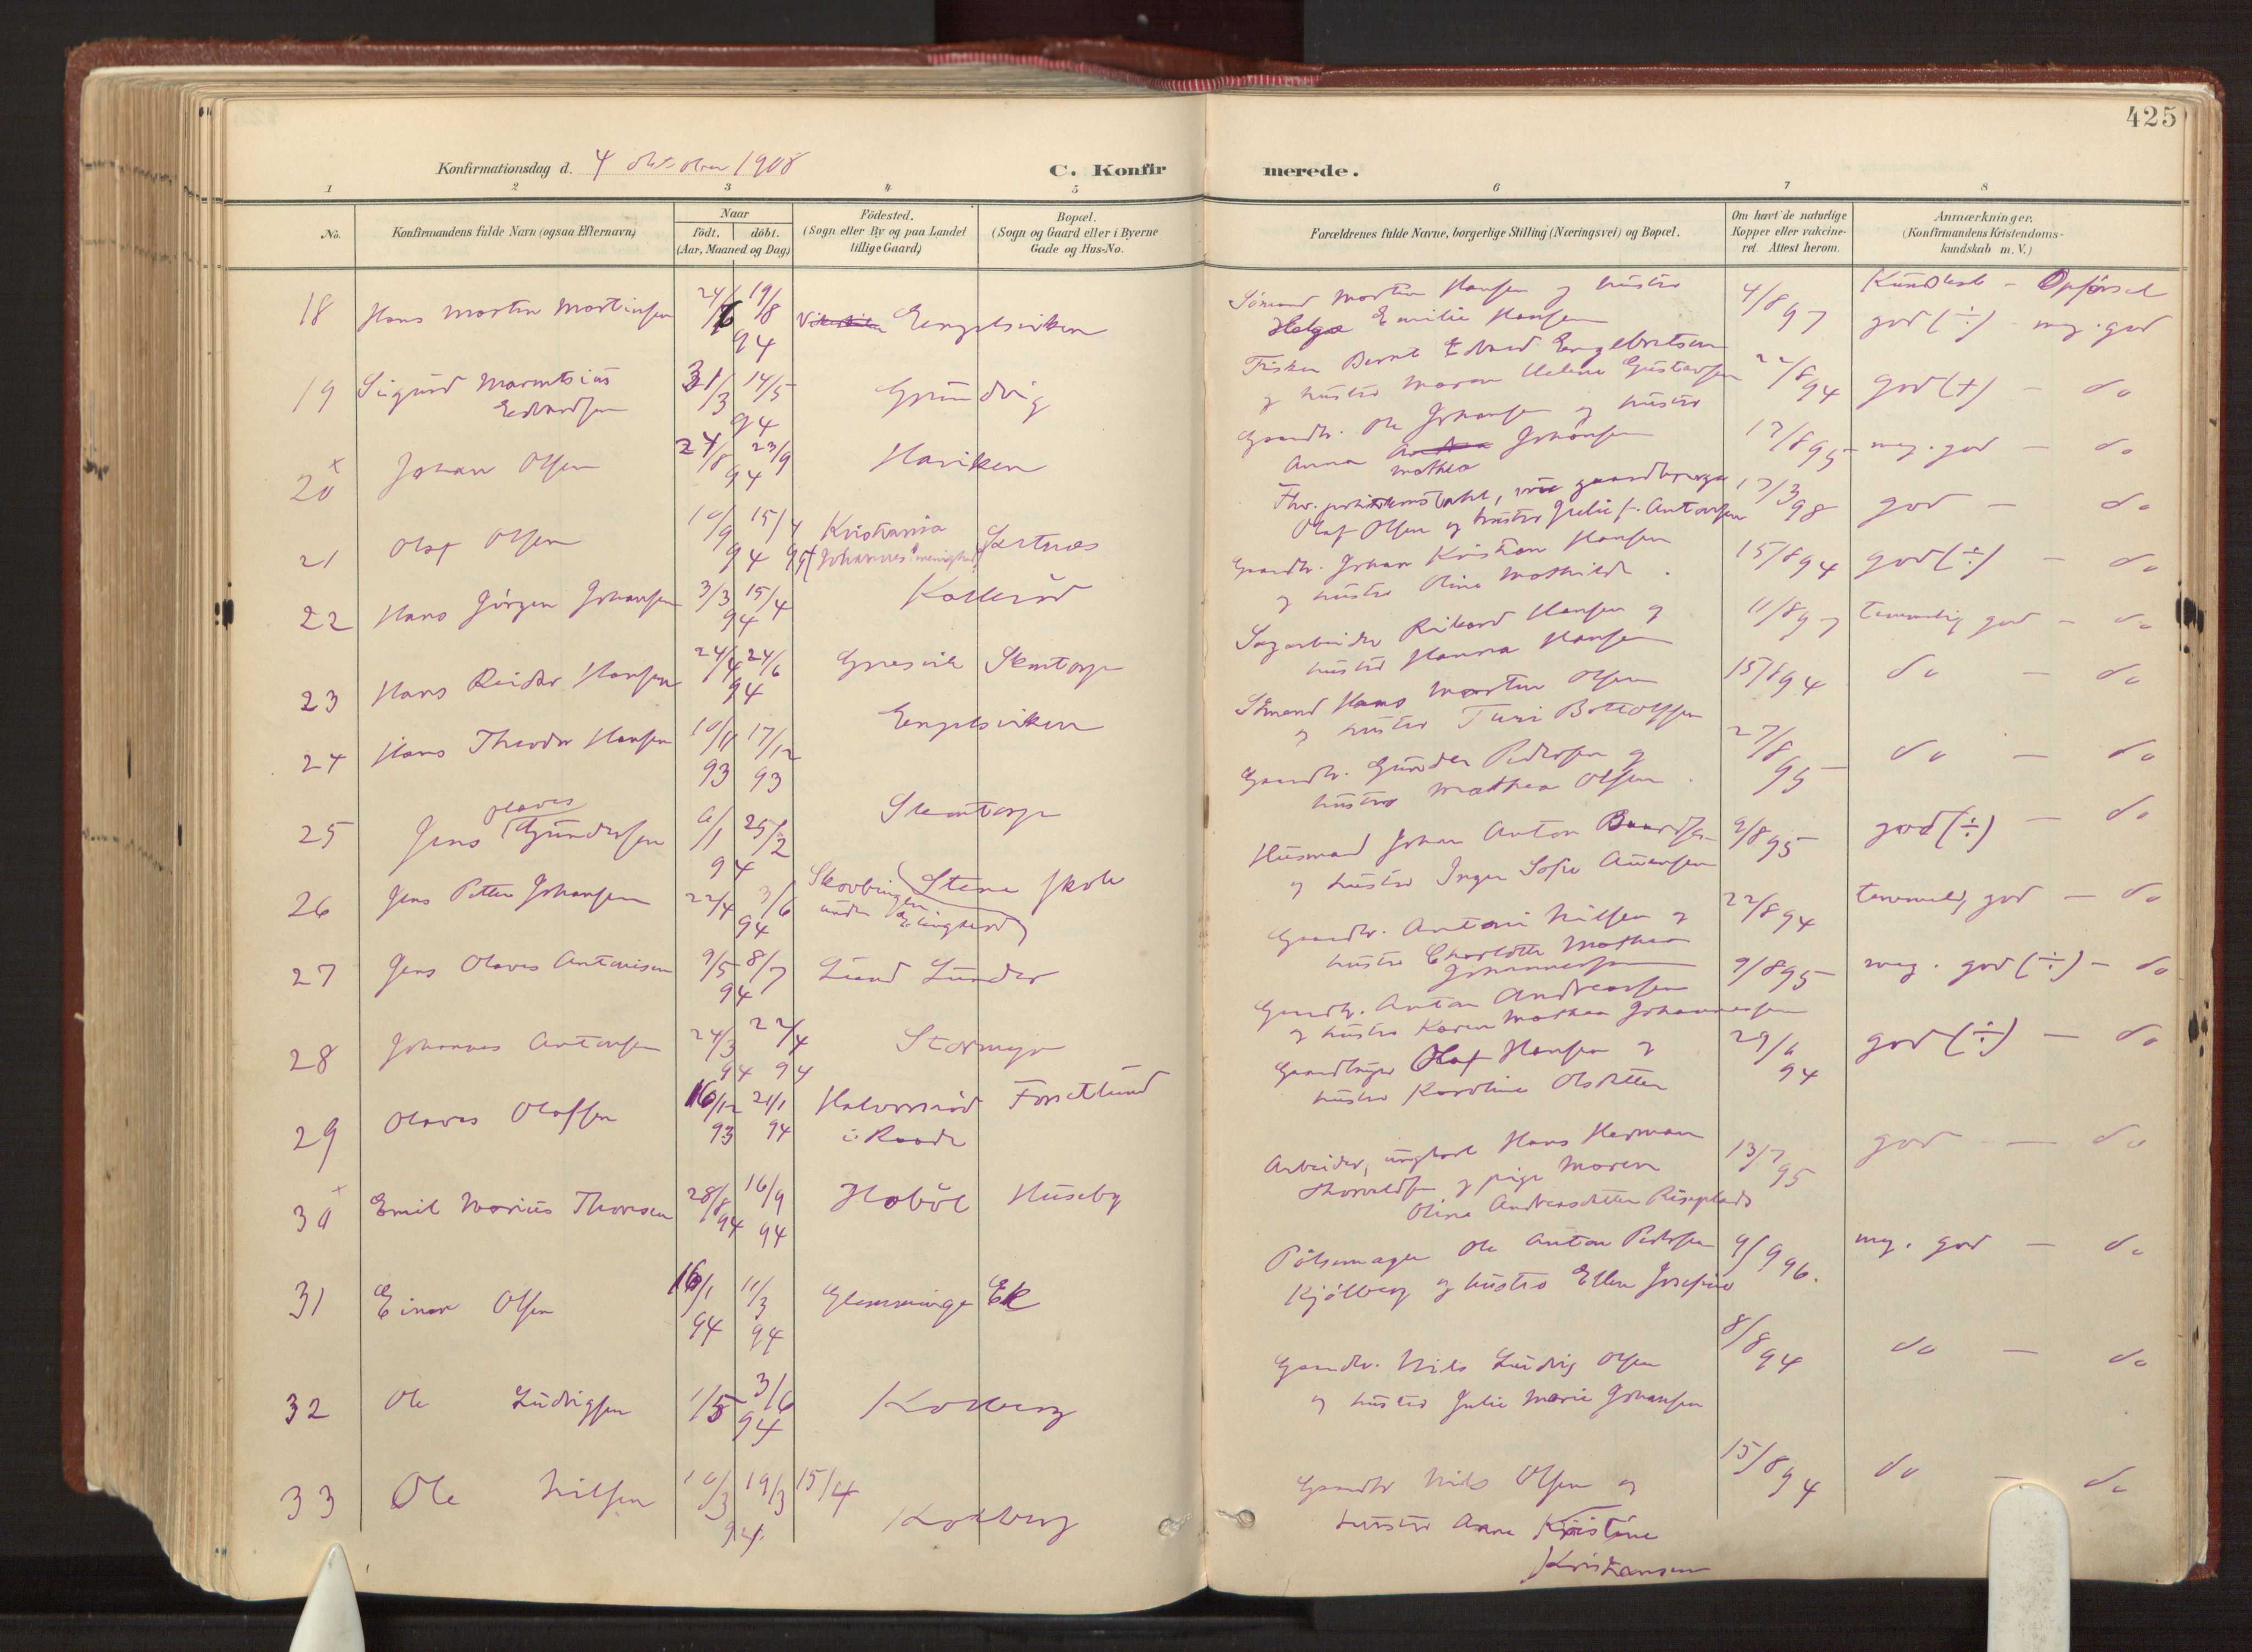 425
Konfirmationsdag d. 4 oktober 1908
C. Konfirmerede.
1 2 3 4 5 6 7 8
No.
Konfirmandens fulde Navn (ogsaa Efternavn)
Naar
födt. döbt.
(Aar, Maaned og Dag)
Födested.
(Sogn eller By og paa Landet
tillige Gaard)
Bopæl.
(Sogn og Gaard eller i Byerne
Gade og Hus-No.
Forældrenes fulde Navne, borgerlige Stilling (Næringsvei) og Bopæl.
Om havt de naturlige
Kopper eller vakcine-
ret. Attest herom.
Anmærkninger.
(Konfirmandens Kristendoms-
kundskab m. V.)
Kundskab - Opførsel
18 Hans Martin Martinsen 24/6 19/8 94 Engelsviken
Sömand Martin Hansen og hustru
Helga Emilie Hansen
4/8 97 god (÷) - mg. god
19 Sigurd Marentsius
Edvardsen
31/3 14/5 94 Grundvig
Fisker Bernt Edvard Engelbretsen
og hustru Maren Helene Gustavsen
22/8 94 god (+) — do
20 x Johan Olsen 24/8 23/9 94 Haviken
Gaardbr. Ole Johansen og hustru
Anna Mathea Johansen
17/8 95 meg. god — do
21 Olaf Olsen 10/9 94 15/4 95 Kristiania
(Johannes menighed)
Sletnæs
Olaf Olsen og hustru Julie F. Antonsen
17/3 98 god — do
22 Hans Jörgen Johansen 3/3 15/4 94 Kolleröd
Gaardbr. Johan Kristian Hansen
og hustru Olina Mathilde
15/8 94 god (÷) — do
23 Hans Reidar Hansen 24/4 24/6 94 Gresvik Stentorp
Sagarbeider Rikard Hansen og
hustru Hanna Hansen
11/8 97 temmelig god — do
24 Hans Theodor Hansen 10/11 93 17/12 93 Engelsviken
Sömand Hans Martin Olsen
og hustru Turi Bottolfsen
15/8 94 do — do
25 Jens Olaves Gundersen 6/1 25/2 94 Stentorp
Gaardbr. Gunder Pedersen og
hustru Mathea Olsen
27/8 95 do — do
26 Jens Petter Johansen 22/4 3/6 94 Skovbringen
under Elingaard)
Stene skole
Husmand Johan Anton
og hustru Inger Sofie
9/8 95 god (÷) — do
27 Jens Olaves Antonisen 9/5 8/7 94 Lund Lunder
Gaardbr. Antoni Nilsen og
hustru Charlotte Mathea
Johannessen
22/8 94 temmelig god — do
28 Johannes Antonsen 24/3 94 22/4 94 Stormyr
Gaardbr. Anton Andreassen
og hustru Karen Mathea Johannessen
9/8 95 meg. god (÷) — do
29 Olaves Olafsen 16/12 93 21/1 94 Halvorsröd
i Raade
Forsetlund
Gaardbruger Olaf Hansen og
hustru Karoline Olsdatter
29/6 94 god (÷) — do
30 x Emil Marius Thoresen 28/8 94 16/9 94 Hoböl Huseby
Arbeider, ungkarl Hans Herman
Thorvaldsen og pige Maren
Olina Andreasdatter
13/7 95 god — do
31 Einar Olsen 16/1 94 11/3 94 Glemminge Ek
Pölsemager Ole Anton Pedersen
Kjölberg og hustru Ellen Josefine
9/9 96. mg. god — do
32 Ole Ludvigsen 1/5 3/6 94 Kolberg
Gaardbr. Nils Ludvig Olsen
og hustru Julie Marie Johansen
8/8 94 do — do
33 Ole Nilsen 10/3 19/3 15/4 94. Kolberg
Gaardbr Nils Olsen og
hustru Anna Kristine
Kristiansen
15/8 94 do — do